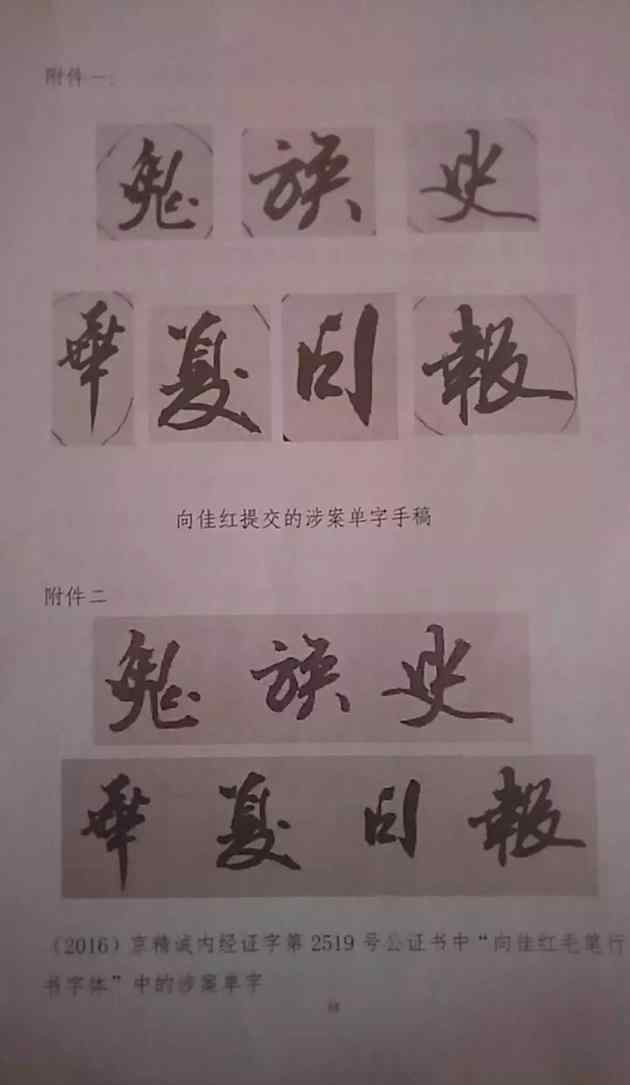 附件一:
鬼族史
華夏日報
向佳红提交的涉案单字手稿
附件二
鬼族史
華夏日報
（2016）京精诚内经证字第 2519 号公证书中“向佳红毛笔行
书字体”中的涉案单字